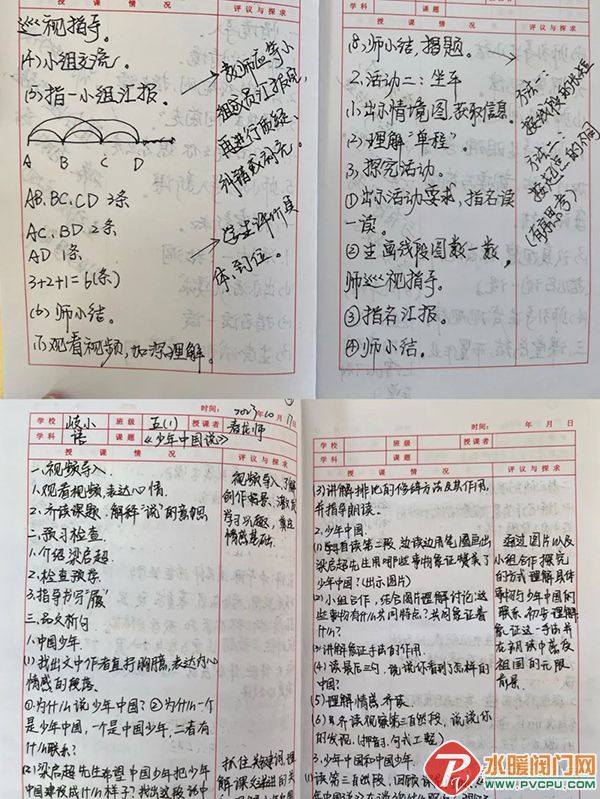 授 课 情 况
评议与探求
巡视指导。
(4)小组交流。
(5)指一小组汇报。
A B C D
AB.BC.CD 3条
AC.BD 2条
AD 1条
3+2+1=6(条)
(6)师小结。
(7)观看视频,加深理解。
教师应等小
组成员汇报完,
再进行质疑、
纠错或补充。
学生评价具
体、到位。
学科
课题
授 课 情 况
评议与探求
(8)师小结,揭题。
2.活动二:坐车
(1)出示情境图,获取信息。
(2)理解"单程"。
3.探究活动。
①出示活动要求,指名读
一读。
②生画线段图数一数,
师巡视指导。
③指名汇报。
④师小结。
方法一:
按线段的长短
方法二:
按起点的不同
(有序思考)
时间: 2023年10月17日
学校 岐小 班级 五(1) 授课者
学科 语 课题 《少年中国说》
授 课 情 况
评议与探求
一.视频导入
1.观看视频,表达心情.
2.齐读课题,解释"说"的意思
二.预习检查.
1.介绍梁启超.
2.检查预学.
3.指导书写"履"
三.品文析句
1.中国少年.
(1)找出文中作者直抒胸臆,表达内心
情感的段落.
①为什么说少年中国?②为什么一个
是少年中国,一个是中国少年,二者有
什么联系?
(2)梁启超先生希望中国少年把少年
中国建设成什么样子?找出这段话中
视频导入,了解
创作背景,激发
学习兴趣,奠定
情感基础.
抓住关键词理
时间: 年 月 日
学校
班级
授课者
学科
课题
授 课 情 况
评议与探求
(3)讲解排比的修辞方法及其作用,
并指导朗读.
2.少年中国.
(1)学生自读第三段,边读边用笔圈画出
梁启超先生用哪些事物象征赞美了
少年中国?(出示图片)
(2)小组合作,结合图片理解讨论:这
些事物有什么共同特点?共同象征着
什么?
(3)讲解象征手法的作用.
(4)读最后三句,说说你看到了怎样的
中国?
(5)理解情感,齐读
(6)再齐读观察第三自然段,说说你
的发现.(押韵,句式工整)
3.少年中国和中国少年.
通过图片以及
小组合作探究
的方式理解具体
事物与少年中国的
联系.初步理解
象征这一手法并
在朗读中感受
祖国的无限
前景.
水暖阀门网
WWW.PVCPU.COM